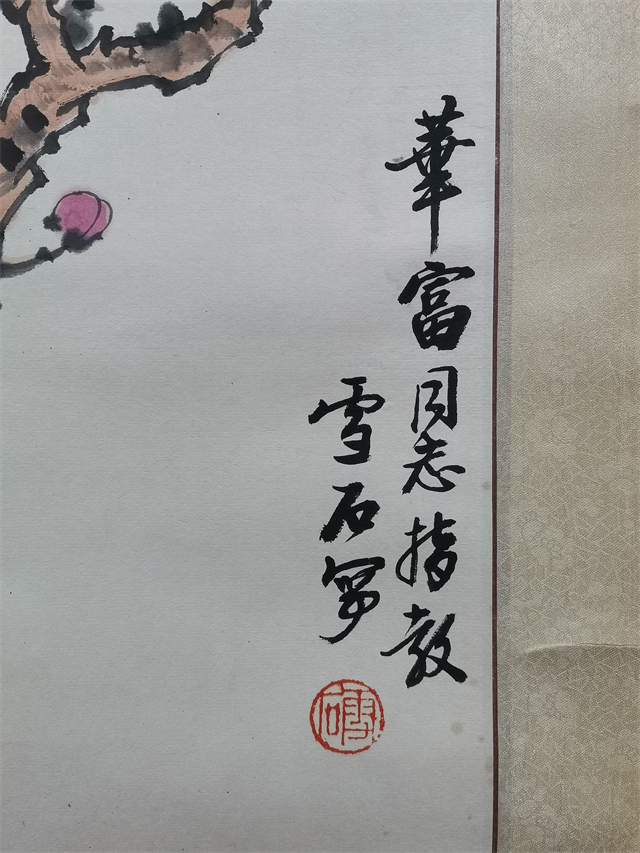 華富同志指教
雪石写
雪石